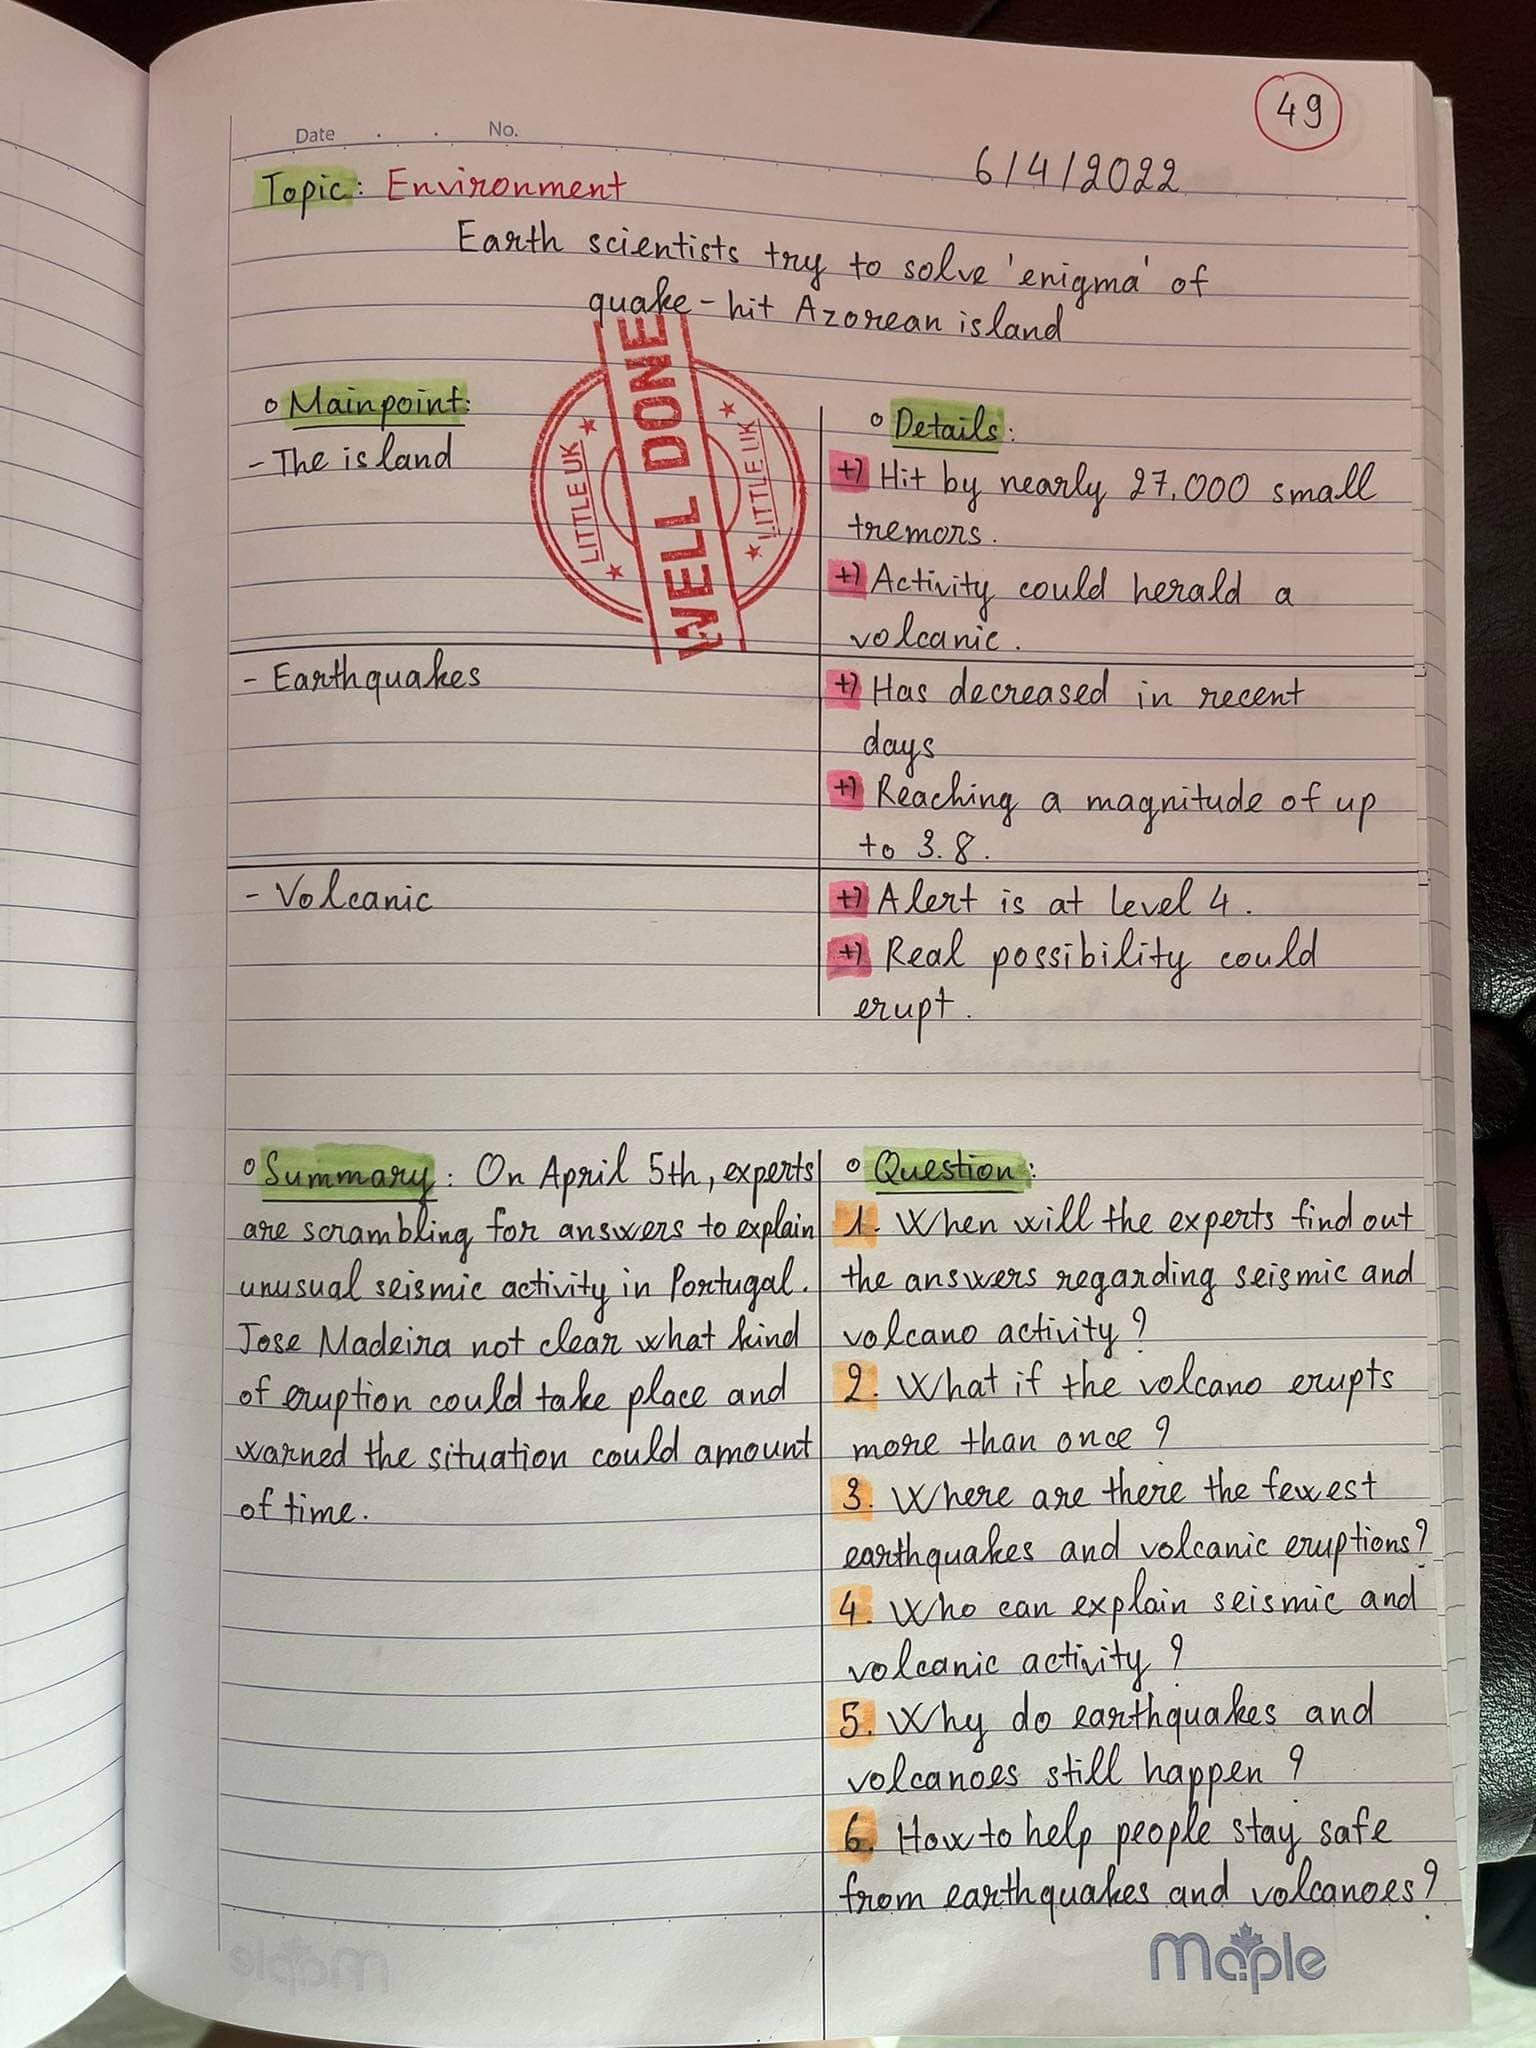 49
Date . . No.
6/4/2022
Topic: Environment
Earth scientists try to solve 'enigma' of
quake-hit Azorean island
WELL DONE
LITTLE UK
LITTLE UK
o Mainpoint:
- The island
o Details:
+) Hit by nearly 27,000 small
tremors.
+) Activity could herald a
volcanic.
- Earthquakes
+) Has decreased in recent
days
+) Reaching a magnitude of up
to 3.8.
- Volcanic
+) Alert is at level 4.
+) Real possibility could
erupt.
o Summary: On April 5th, experts
are scrambling for answers to explain
unusual seismic activity in Portugal.
Jose Madeira not clear what kind
of eruption could take place and
warned the situation could amount
of time.
o Question:
1. When will the experts find out
the answers regarding seismic and
volcano activity?
2. What if the volcano erupts
more than once?
3. Where are there the fewest
earthquakes and volcanic eruptions?
4. Who can explain seismic and
volcanic activity?
5. Why do earthquakes and
volcanoes still happen?
6. How to help people stay safe
from earthquakes and volcanoes?
Maple